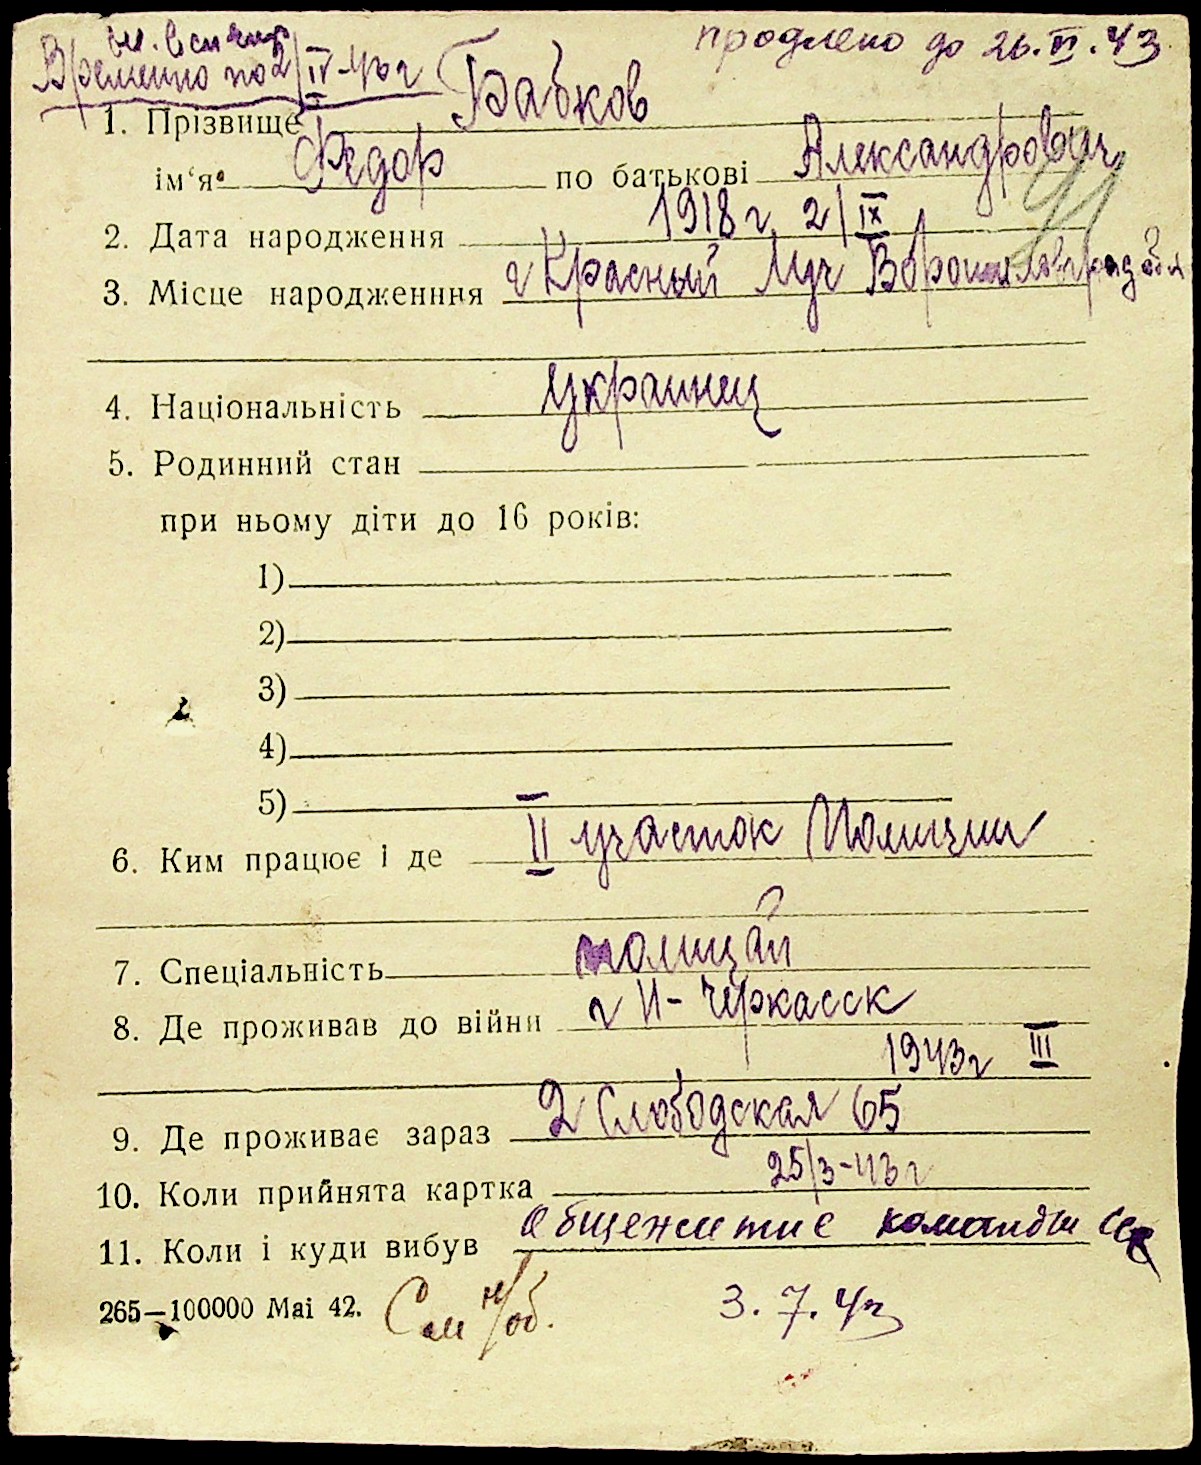 продлено до 26.VI.43
Временно по 2/IV-43 г
1. Прізвище Бабков
ім‘я Федор по батькові Александрович
2. Дата народження 1918 г 2/IX
3. Місце народженння г Красный Луч Ворошиловград обл
4. Національність украинец
5. Родинний стан
при ньому діти до 16 років:
1)
2)
3)
4)
5)
6. Ким працює і де II участок Полиции
7. Спеціальність полицай
8. Де проживав до війни г Н-Черкасск
1943 г III
9. Де проживає зараз 2 Слободская 65
10. Коли прийнята картка 25/3-43 г
11. Коли і куди вибув Общежитие команды
265—100000 Mai 42. См н/об. 3.7.43